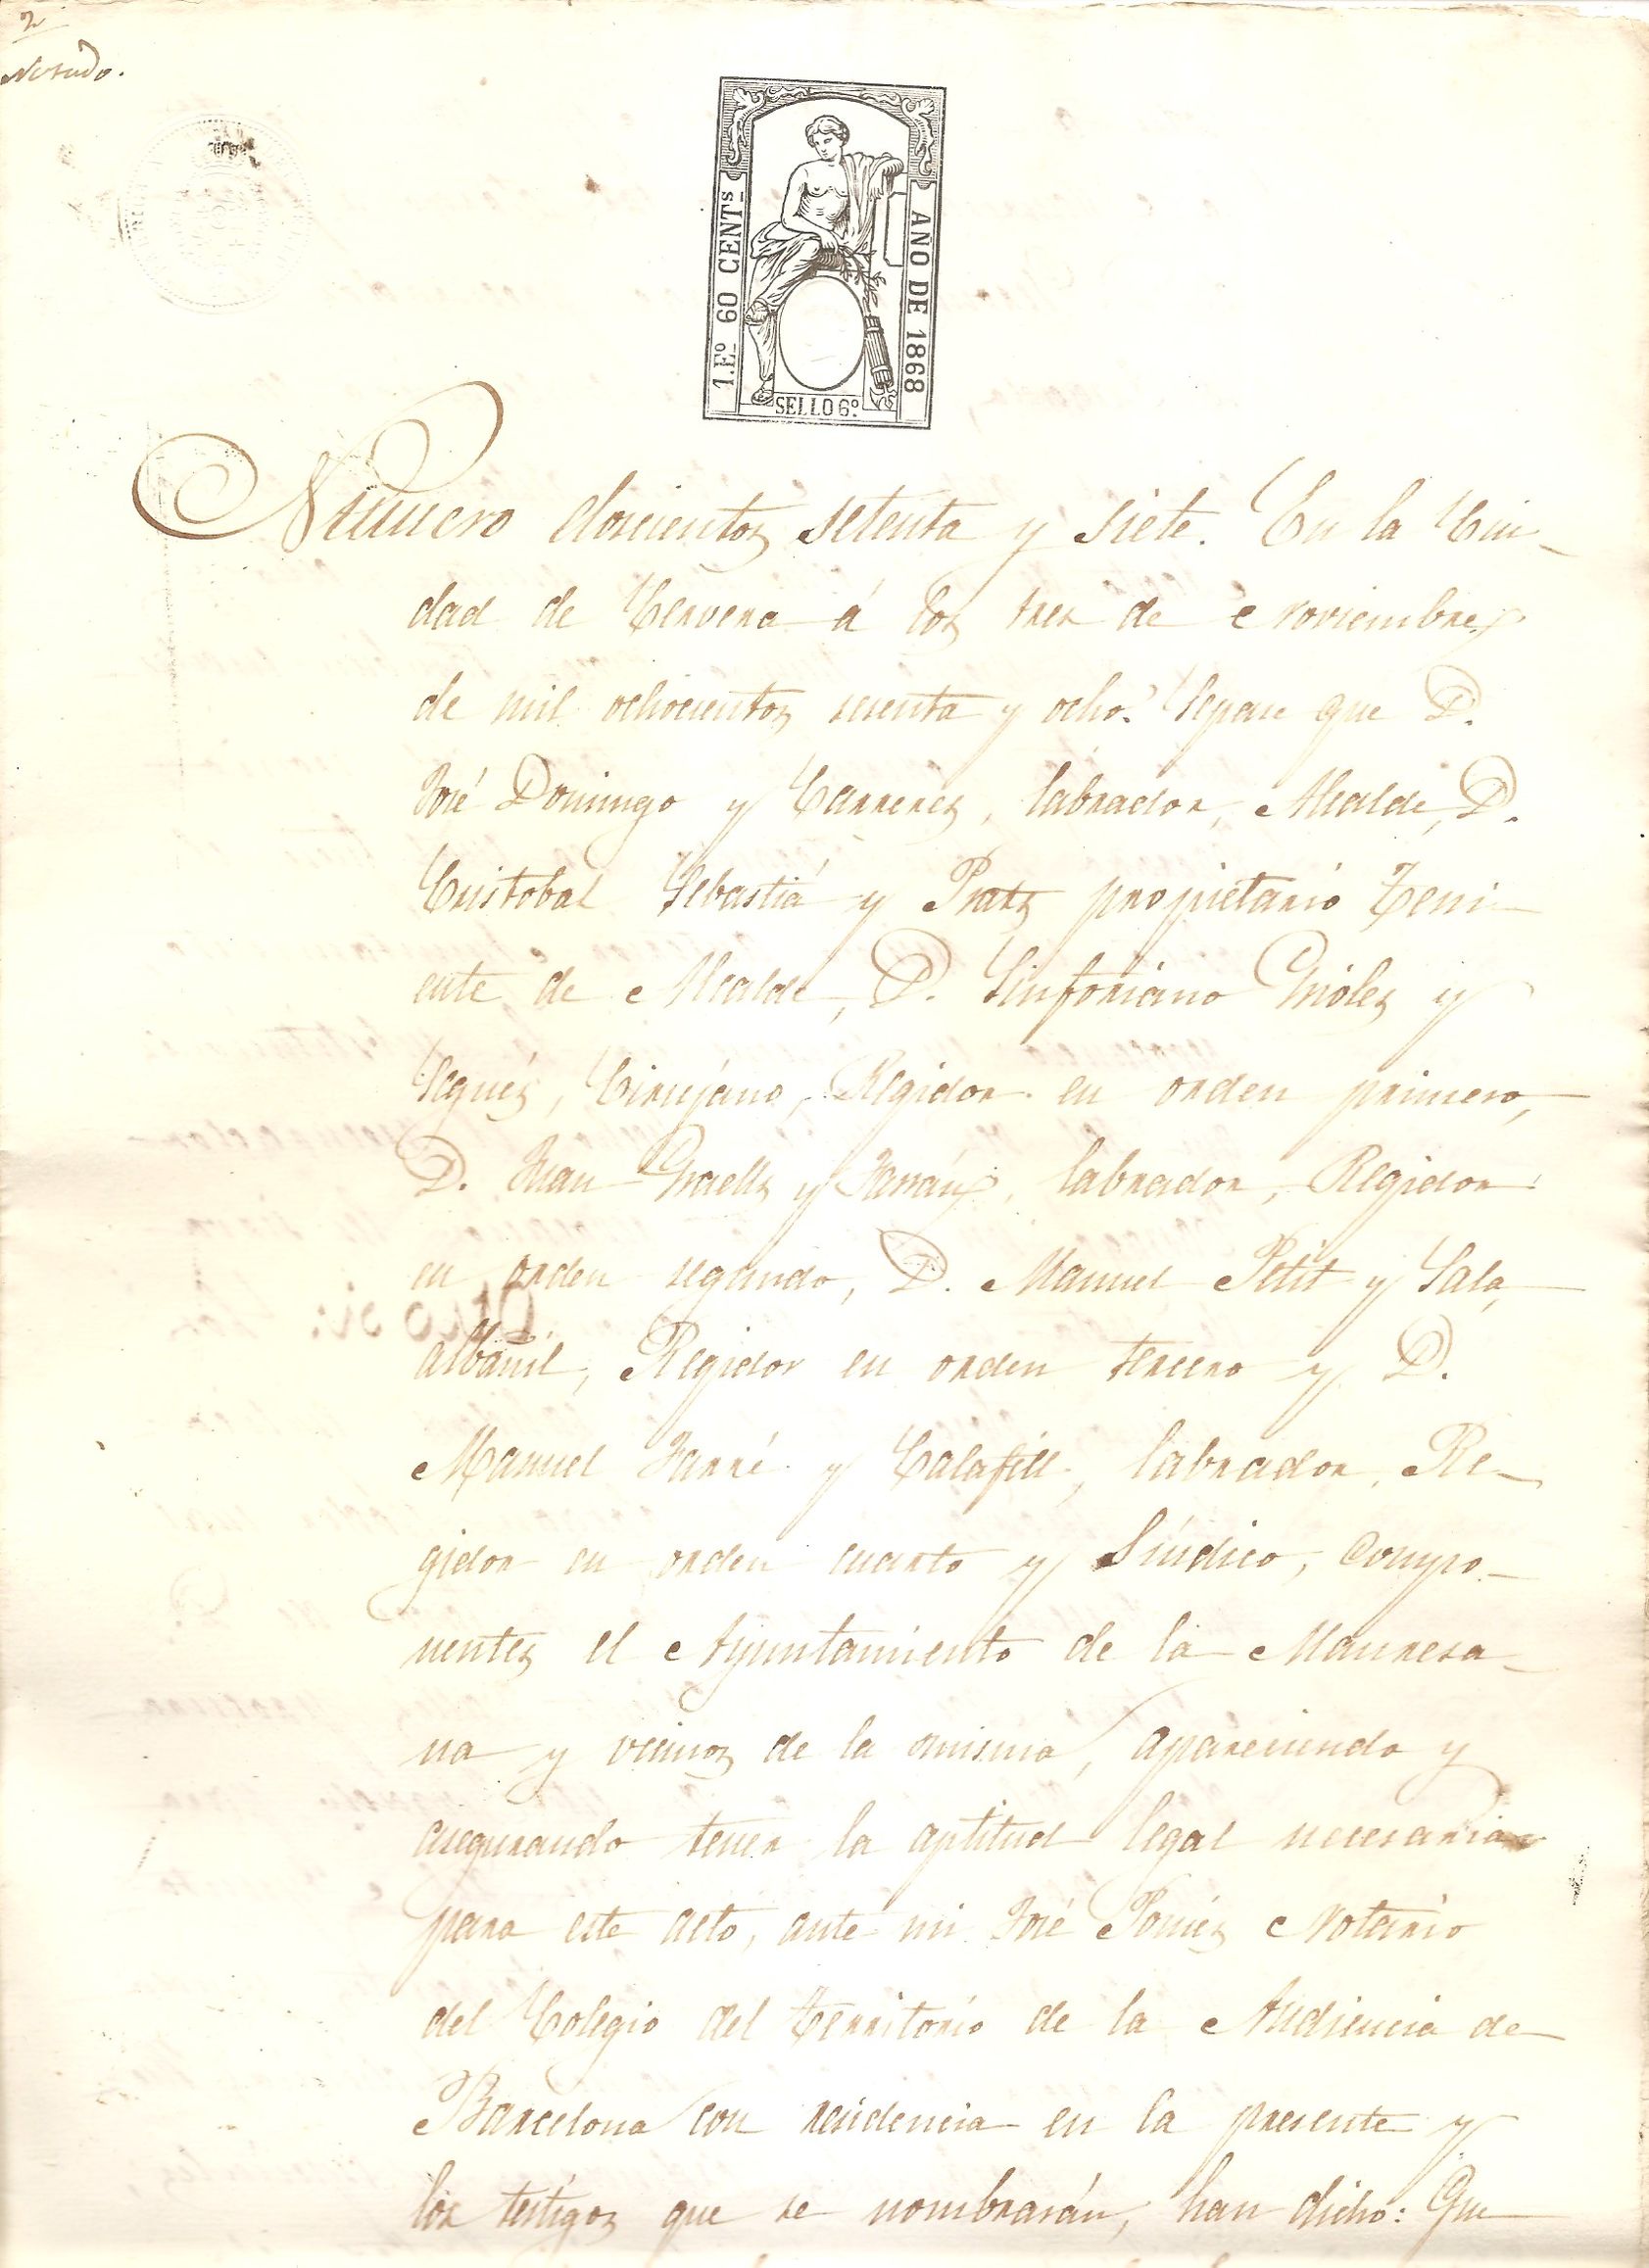 2
1.Eº 60 CENTs
AÑO DE 1868
SELLO 6º
Número doscientos setenta y siete. En la Ciu-
dad de Cervera á los tres de Noviembre
de mil ochocientos sesenta y ocho. Sepase que D.
José Domingo y Carreres, labrador, Alcalde, D.
Cristobal Sebastiá y Prats propietario Teni-
ente de Alcalde, D. Sinforiano Mioles y
Segués, Cirujano, Regidor en orden primero,
D. Juan Graells y Farrán, labrador, Regidor
en orden segundo, D. Manuel Petit y Sala,
albañil, Regidor en orden tercero y D.
Manuel Farré y Calafell, labrador, Re-
gidor en orden cuarto y Síndico, compo-
nentes el Ayuntamiento de la Manresa-
na y vecinos de la misma, apareciendo y
asegurando tener la aptitud legal necesaria
para este acto, ante mi José Pomés Notario
del Colegio del territorio de la Audiencia de
Barcelona con residencia en la presente y
los testigos que se nombrarán, han dicho: Que